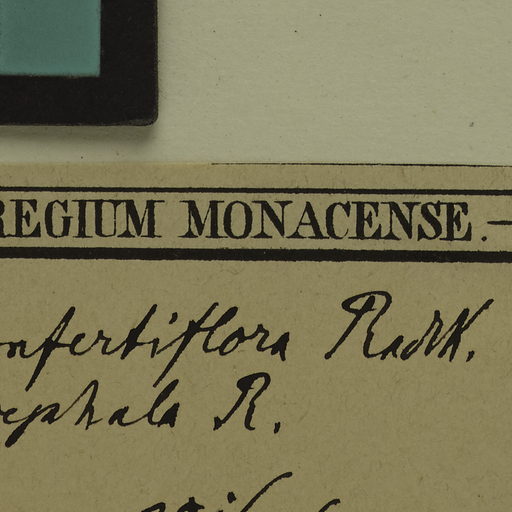 REGIUM MONACENSE. —
nfertiflora Radlk.
cephala R.